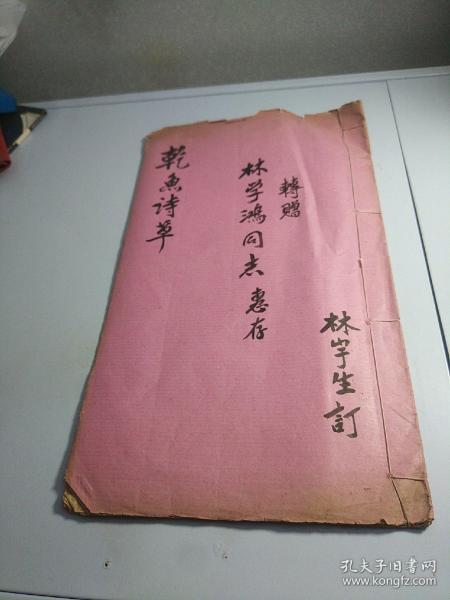 轉贈
林学鴻同志惠存
林宇生訂
乾魚诗草
孔夫子旧书网
www.kongfz.com